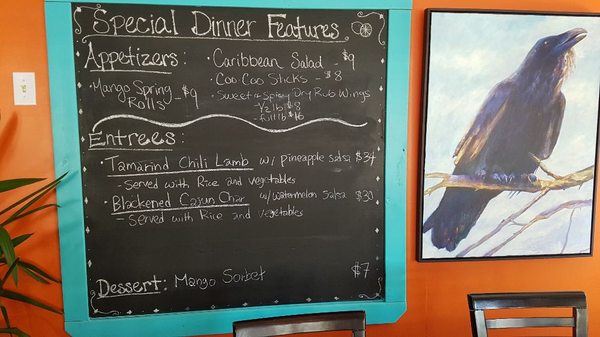 Special Dinner Features
Appetizers:
· Mango Spring Rolls - $9
· Caribbean Salad - $9
· Coo Coo Sticks - $8
· Sweet & Spicy Dry Rub Wings
- 1/2 lb $8
- full lb $16
Entrees:
· Tamarind Chili Lamb w/ pineapple salsa $34
- Served with Rice and vegetables
· Blackened Cajun Char w/ watermelon Salsa
- Served with Rice and vegetables
Dessert: Mango Sorbet $7